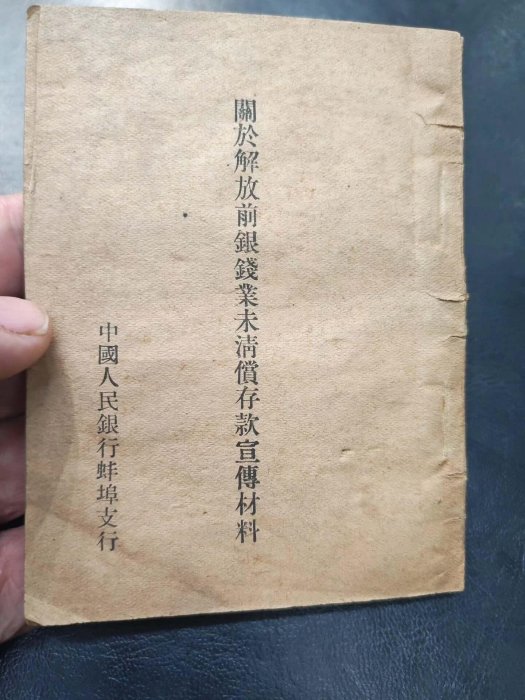 關於解放前銀錢業未清償存款宣傳材料
中國人民銀行蚌埠支行